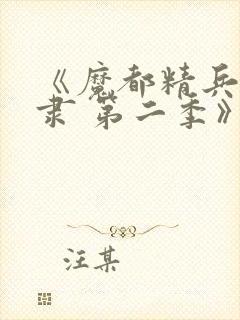 《魔都精兵
隶 第二季》
汪某